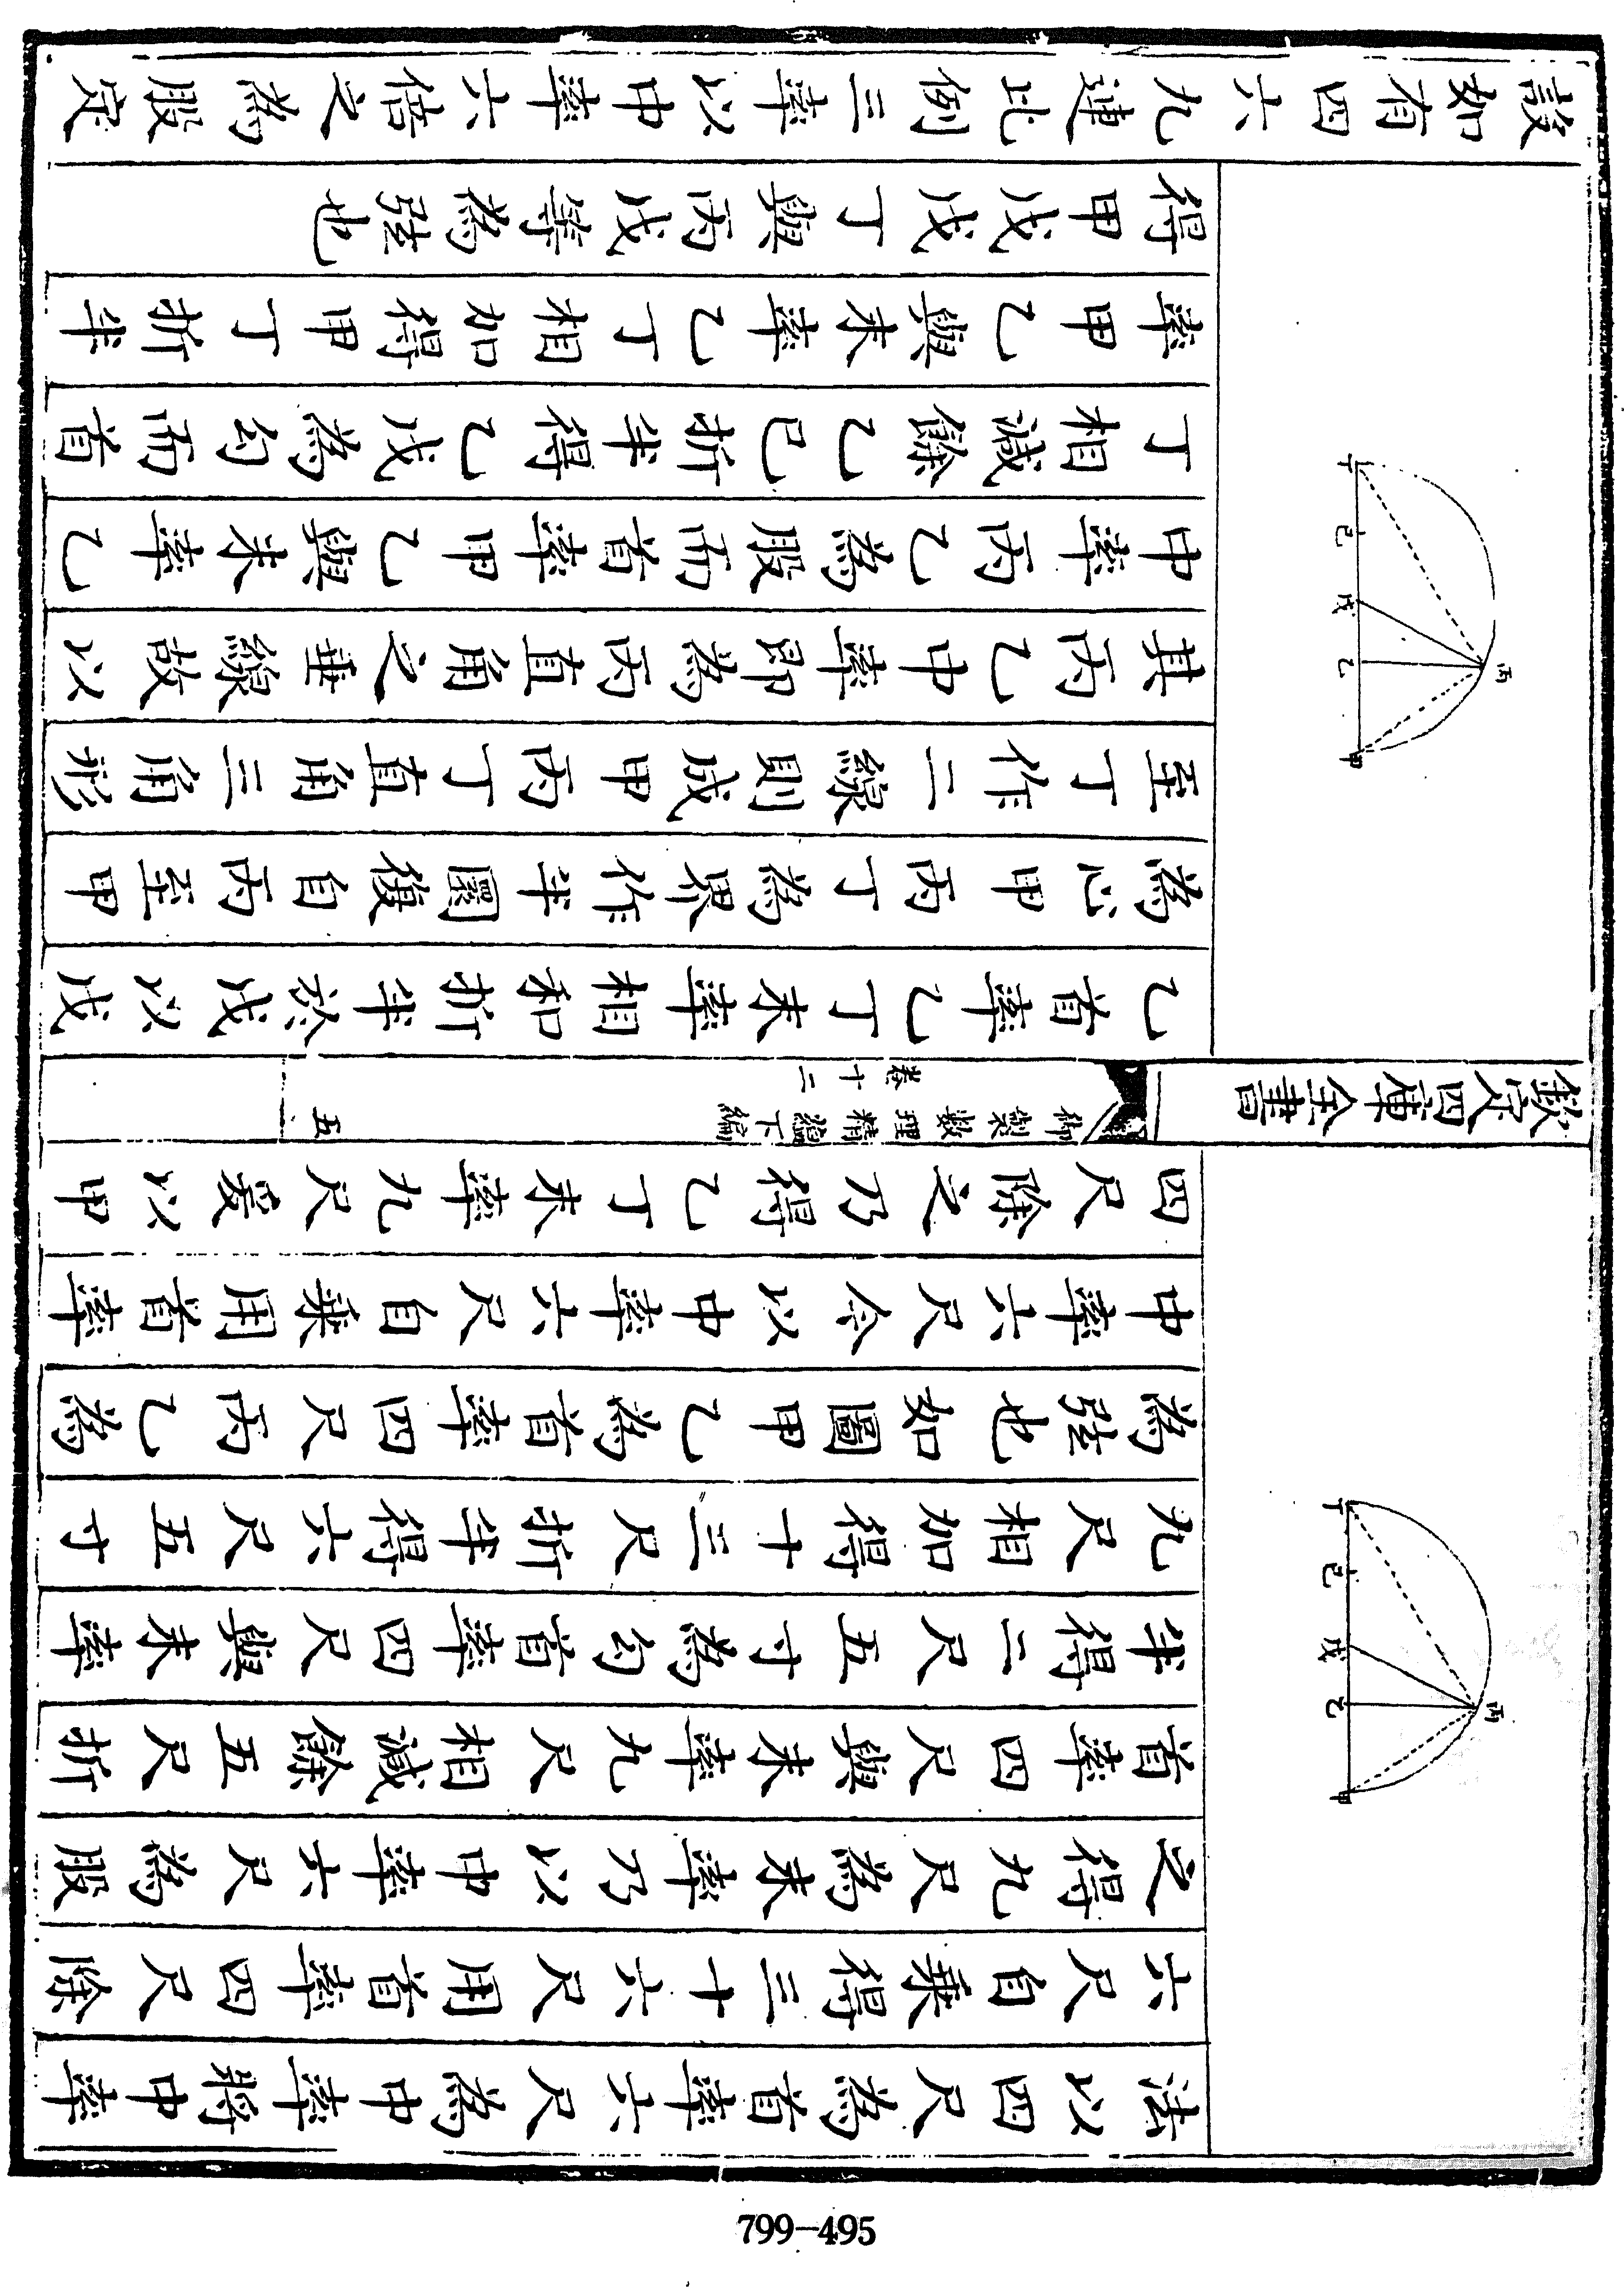 丁
己
戊
乙
丙
甲
法以四尺為首率六尺為中率將中率
六尺自乘得三十六尺用首率四尺除
之得九尺為末率乃以中率六尺為股
首率四尺與末率九尺相減餘五尺折
半得二尺五寸為勾首率四尺與末率
九尺相加得十三尺折半得六尺五寸
為弦也如圖甲乙為首率四尺丙乙為
中率六尺今以中率六尺自乘用首率
四尺除之乃得乙丁末率九尺爰以甲
欽定四庫全書
御製數理精蘊下編
卷十二
五
丁
己
戊
乙
丙
甲
乙首率乙丁末率相和折半於戊以戊
為心甲丙丁為界作半圜復自丙至甲
至丁作二線則成甲丙丁直角三角形
其丙乙中率即為丙直角之垂線故以
中率丙乙為股而首率甲乙與末率乙
丁相減餘乙己折半得乙戊為勾而首
率甲乙與末率乙丁相加得甲丁折半
得甲戊戊丁與丙戊等為弦也
設如有四六九連比例三率以中率六倍之為股定
799-495